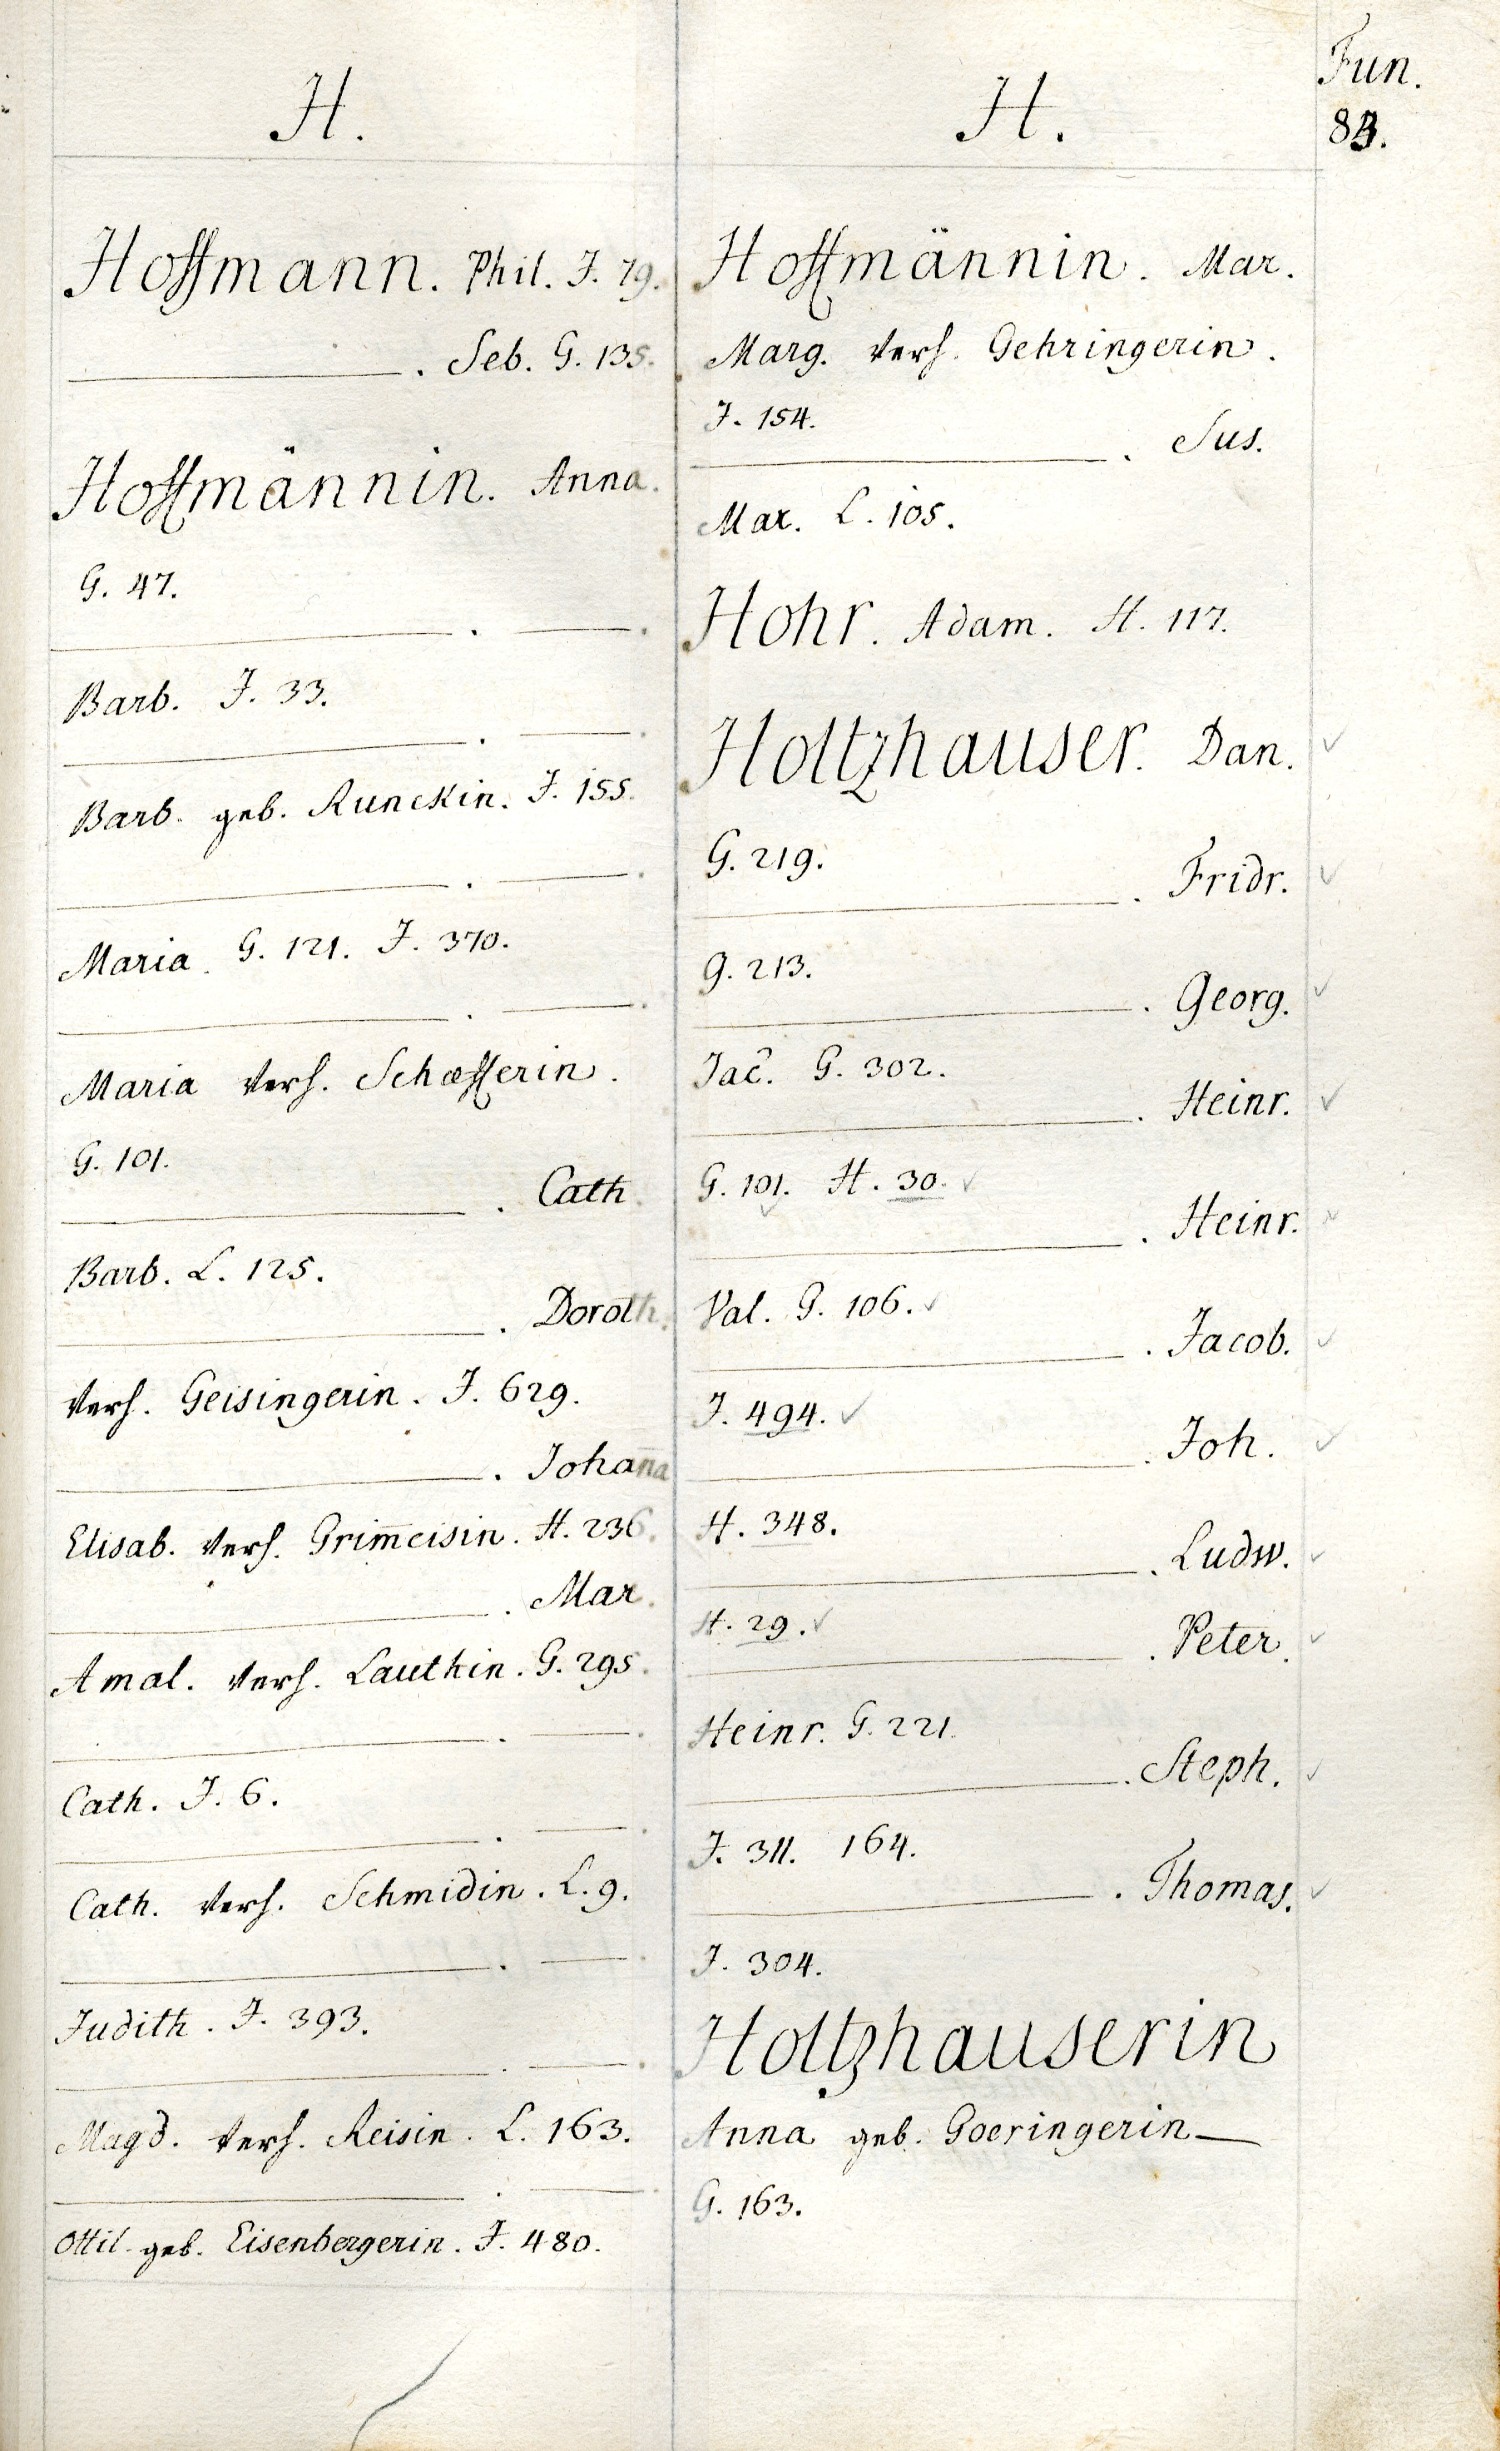 Fun.
83.
H.
Hoffmann. Phil. J. 79.
——. Seb. G. 135.
Hoffmännin. Anna.
G. 47.
——. ——.
Barb. J. 33.
——. ——.
Barb. geb. Runckin. J. 155.
——. ——.
Maria. G. 121. J. 370.
——. ——.
Maria verh. Schæfferin.
G. 101.
——. Cath.
Barb. L. 125.
——. Doroth.
verh. Geisingerin. J. 629.
——. Johana
Elisab. verh. Grim̅eisin. H. 236.
——. Mar.
Amal. verh. Lauthin. G. 295.
——. ——.
Cath. J. 6.
——. ——.
Cath. verh. Schmidin. L. 9.
——. ——.
Judith. J. 393.
——. ——.
Magd. verh. Reisin. L. 163.
——. ——.
Ottil. geb. Eisenbergerin. J. 480.
H.
Hoffmännin. Mar.
Marg. verh. Gehringerin.
J. 154.
——. Sus.
Mar. L. 105.
Hohr. Adam. H. 117.
Holtzhauser. Dan. ✓
G. 219.
——. Fridr. ✓
G. 213.
——. Georg. ✓
Jac̃. G. 302.
——. Heinr. ✓
G. 101. H. 30. ✓
——. Heinr. ✓
Val. G. 106. ✓
——. Jacob. ✓
J. 494. ✓
——. Joh. ✓
H. 348.
——. Ludw. ✓
H. 29. ✓
——. Peter. ✓
Heinr. G. 221.
——. Steph. ✓
J. 311. 164.
——. Thomas. ✓
J. 304.
Holtzhauserin
Anna geb. Goeringerin—
G. 163.